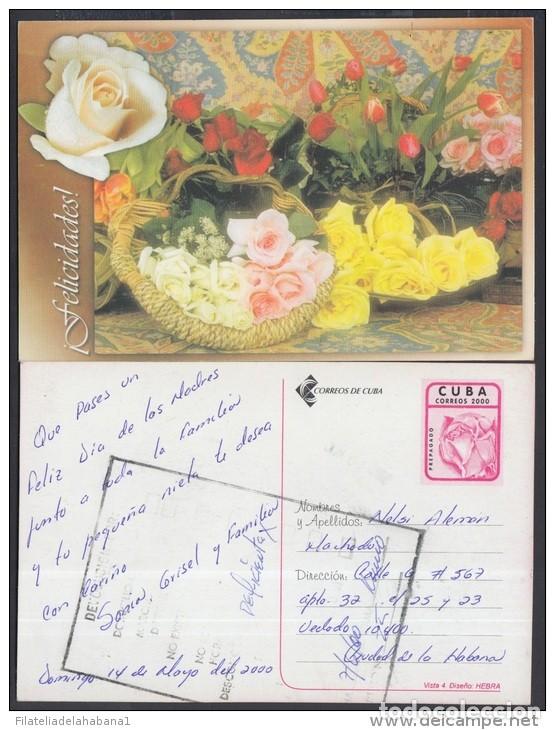 ¡Felicidades!
Que Pases un
Feliz Dia de las Madres
junto a toda la Familia
y tu pequeña nieta te desea
con Cariño
Grisel y Familia
Domingo 14 de Mayo del 2000
CORREOS DE CUBA
CUBA
CORREOS 2000
PREPAGADO
Nombres
y Apellidos: Nelsi Aleman
Machado
Dirección: Calle # 567
apto. 32 e/ 25 y 23
Vedado 10400
Ciudad de la Habana
Vista 4 Diseño: HEBRA
Filateliadelahabana1
todocoleccion.net